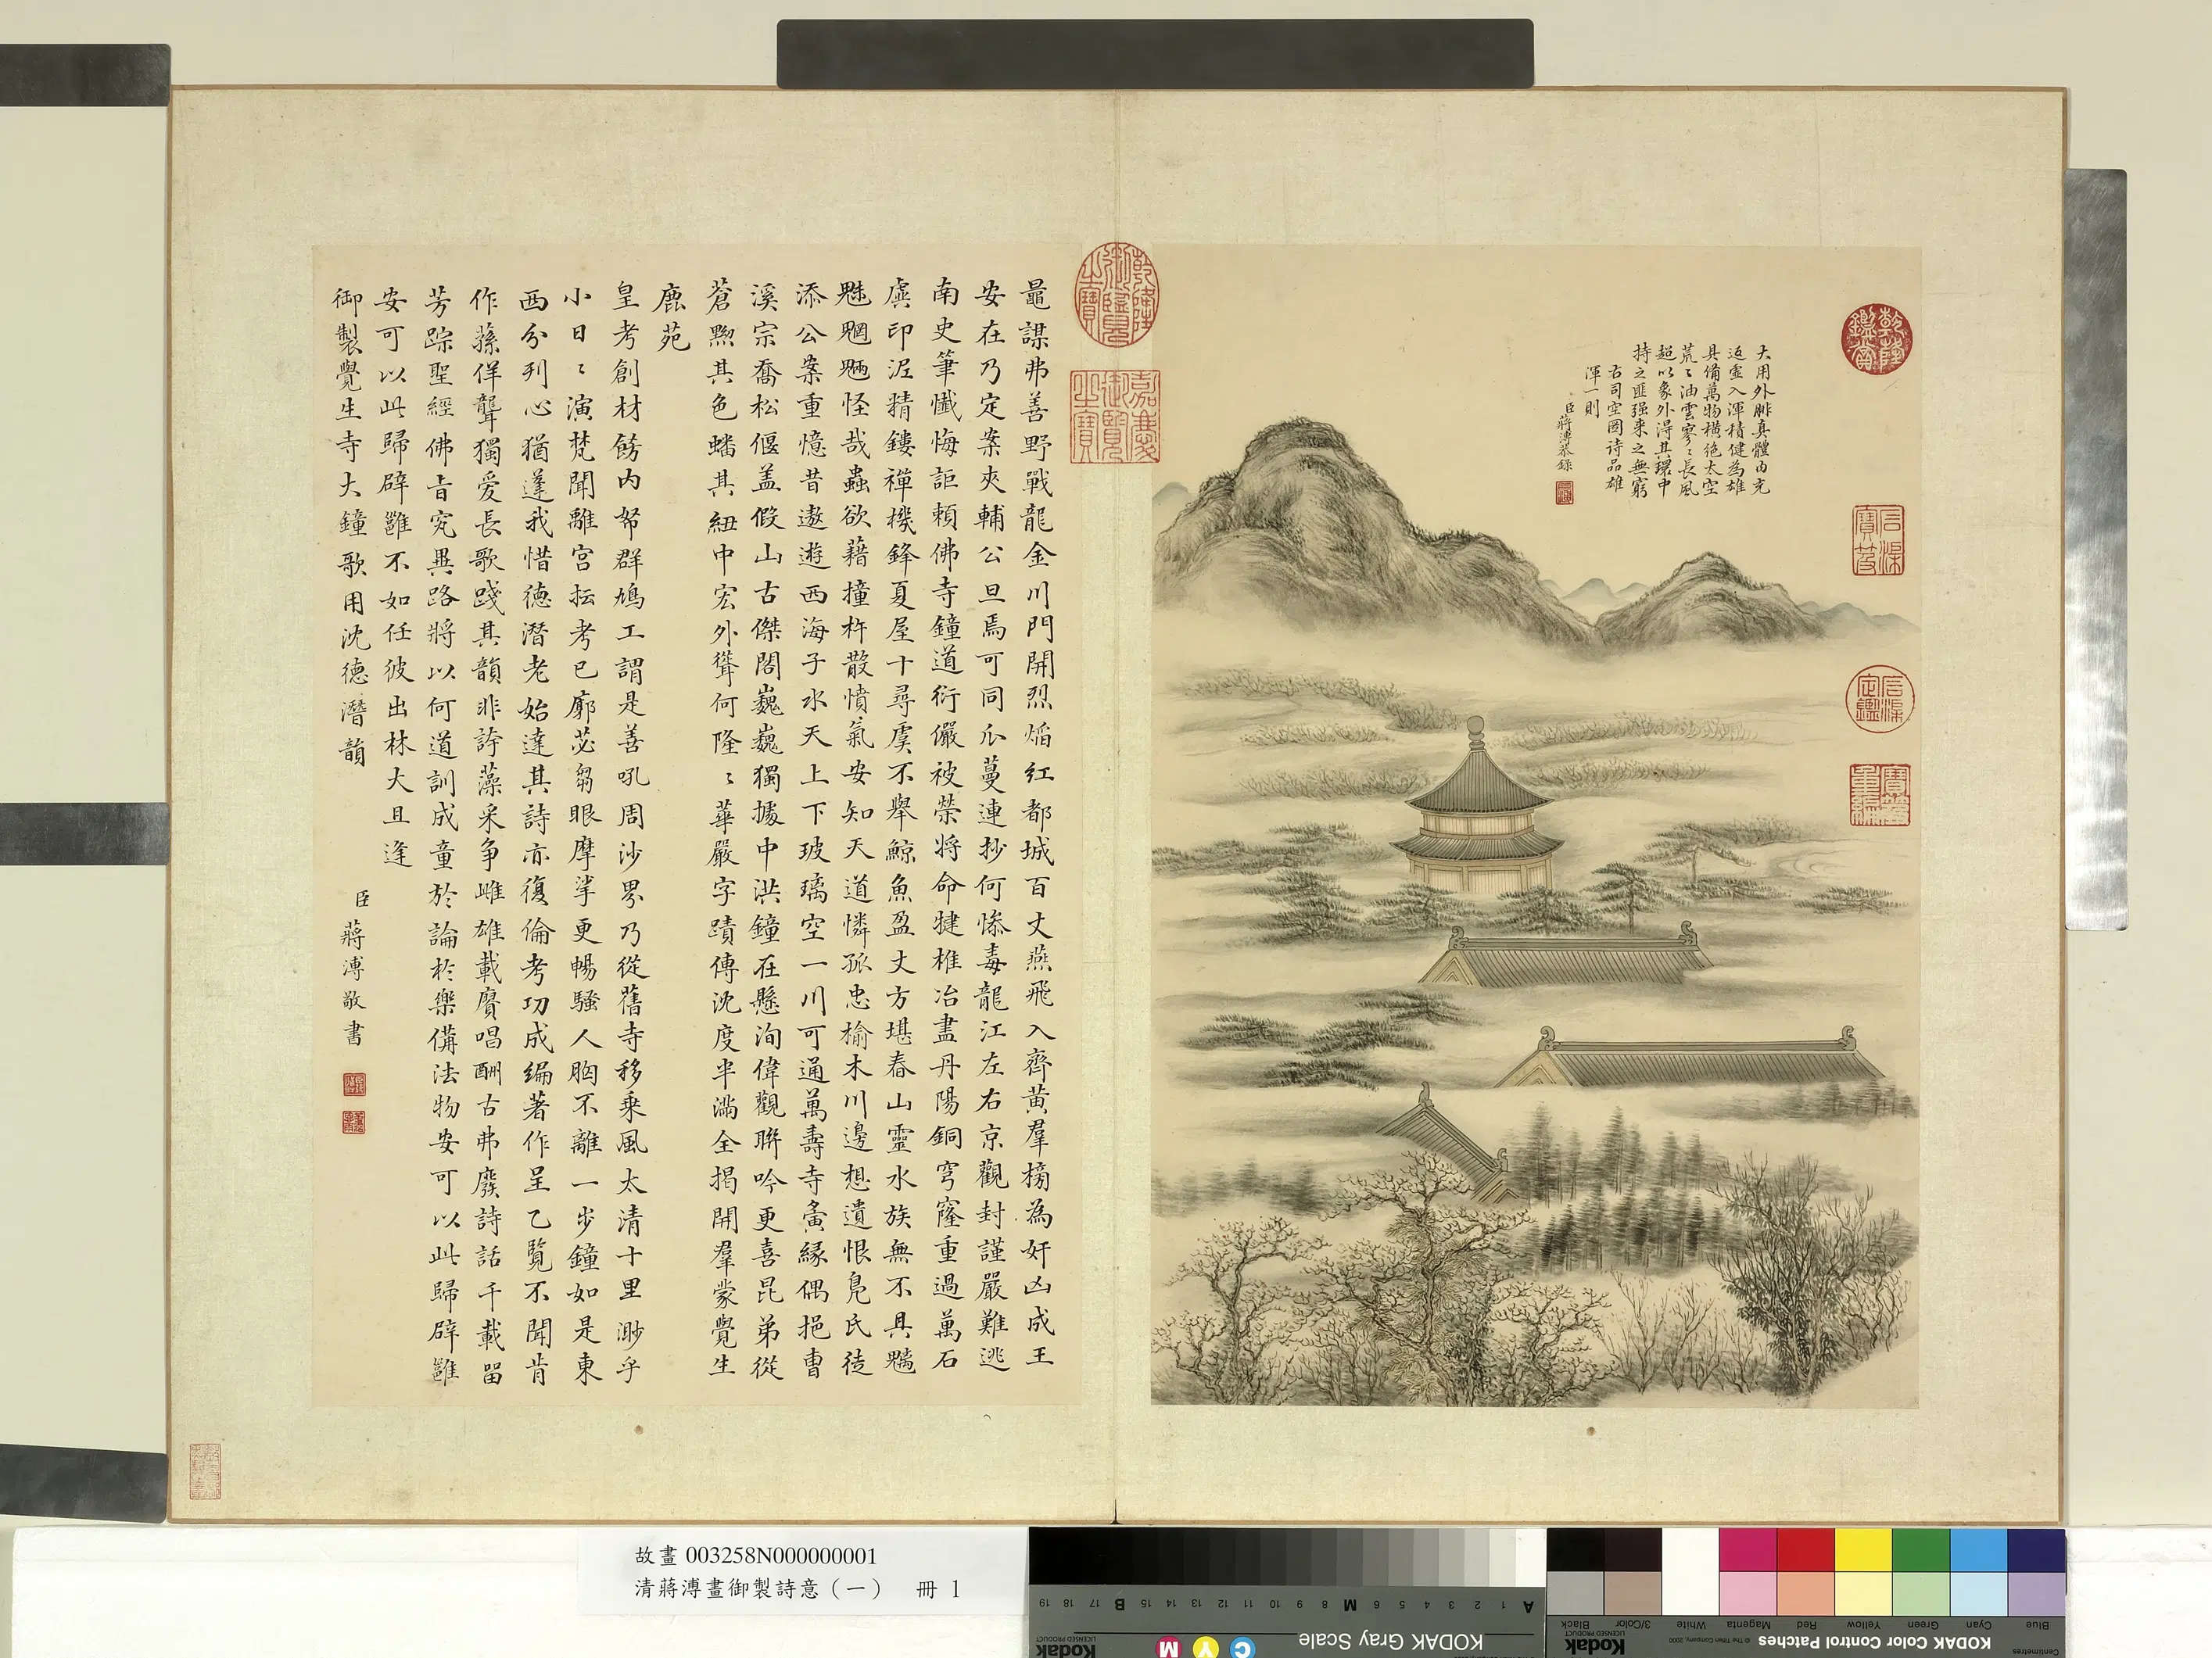 大用外腓真體內充
返虛入渾積健為雄
具備萬物橫絕太空
荒〻油雲寥〻長風
超以象外得其環中
持之匪强來之無窮
右司空圖诗品雄
渾一則
臣蔣溥恭錄
乾隆鑑賞
石渠寶笈
石渠定鑑
寶笈重編
乾隆御覽之寶
嘉慶御覽之寶
鼂謀弗善野戰龍金川門開烈焰紅都城百丈燕飛入齊黃羣榜為奸凶成王
安在乃定案夾輔公旦焉可同瓜蔓連抄何慘毒龍江左右京觀封謹嚴難逃
南史筆懺悔詎賴佛寺鐘道衍儼被榮將命犍椎冶盡丹陽銅穹窿重過萬石
虡印泥精鏤禪機鋒夏屋十尋虞不舉鯨魚盈丈方堪舂山靈水族無不具魑
魅魍魎怪哉蟲欲藉撞杵散憤氣安知天道憐孤忠榆木川邊想遺恨鳧氏徒
添公案重憶昔遨遊西海子水天上下玻璃空一川可通萬壽寺夤緣偶挹曹
溪宗喬松偃盖假山古傑閣巍巍獨據中洪鐘在懸洵偉觀聨吟更喜昆弟從
蒼黝其色蟠其紐中宏外聳何隆〻華嚴字蹟傳沈度半滿全揭開羣蒙覺生
鹿苑
皇考創材餝內帑群鳩工謂是善吼周沙界乃從舊寺移乘風太清十里渺乎
小日〻演梵聞離宮抎考已廓苾芻眼摩挲更暢騷人胸不離一步鐘如是東
西分列心猶蓬我惜德潛老始達其詩亦復倫考功成編著作呈乙覽不聞肯
作蓀佯聾獨爱長歌踐其韻非誇藻采争雌雄載賡唱酬古弗廢詩話千載留
芳踪聖經佛旨究異路將以何道訓成童於論於樂備法物安可以此歸辟雝
安可以此歸辟雝不如任彼出林大且逢
御製覺生寺大鐘歌用沈德潛韻
臣蔣溥敬書
故畫 003258N000000001
清蔣溥畫御製詩意（一）　冊 1
KODAK Gray Scale
A 1 2 3 4 5 6 M 8 9 10 11 12 13 14 15 B 17 18 19
C Y M
Kodak
LICENSED PRODUCT
KODAK Color Control Patches
© The Tiffen Company, 2000
Kodak
LICENSED PRODUCT
Centimetres
Blue Cyan Green Yellow Red Magenta White 3/Color Black